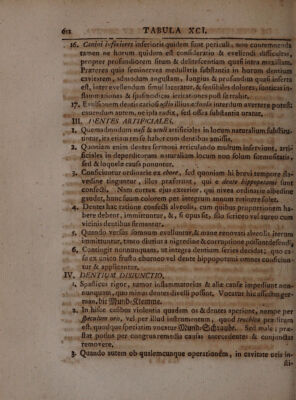 612 TABULA XCI.
16. Canini inferioris quidem sunt periculi, non contemnenda
tamen ne horum quidem est consideratio & evellendi difficultas,
propter profundiorem situm & delitescentiam quasi intra maxillam.
Præterea quia seminervea medullaris substantia in horum dentium
cavitatem, admodum angustam, longius & profundius quasi inserta
est, inter evellendum simul laceratur, & sensibiles dolores,
& ejusmodi
17. dentis interdum avertere potest:
eruendum autem, ne ipsi radix, sed ossea substantia oratur.
III. DENTES ARTIFICIALES.
1. Quemadmodum artificiales in locum naturalium substituuntur,
ita etiam res se habet cum dentibus amissis.
2. Quoniam enim dentes sermoni articulando multum inserviunt, artificiales
in deperditorum naturalium locum non solum formositatis,
sed & loquelæ causâ ponuntur.
3. Conficiuntur ordinarie ex ebore, sed quoniam hi brevi tempore flavedine
tinguntur, illos præferunt, qui e dente hippopotami sunt
confecti. Nam cortex ejus exterior, qui nivea ordinarie albedine
gaudet, hunc suum colorem per integrum annum retinere solet.
4. Dentes hac ratione confecti alveolis, cum quibus proportionem habere
debent, immittuntur, &, si opus sit, filo sericeo vel aureo cum
vicinis dentibus firmantur.
5. Quando versus somnum avelluntur, & mane renovati alveolis iterum
immittuntur, tineo diutius a nigredine & corruptione possunt defendi.
6. Contingit nonnunquam, ut integra dentium series decidat, quo casu
ex unico frusto eborneo vel dente hippopotami omnes conficiuntur
& applicantur.
IV. DENTIUM DISJUNCTIO.
1. Spasticus rigor, tumor inflammatorius & aliæ causæ impediunt nonnunquam,
quo minus dentes divelli possint. Vocatur hic affectus german.
die Mund-Klemme.
2. In hisce casibus violentia quadam os & dentes aperiunt, nempe per
speculum oris, vel per illud instrumentum, quod trochlea præditum
est, quodque speciatim vocatur Mund-Schraube. Sed male: præstat
potius per congrua remedia causas antecedentes & conjunctas
removere.
3. Quando autem ob qualemcunque operationem, in cavitate oris insti-